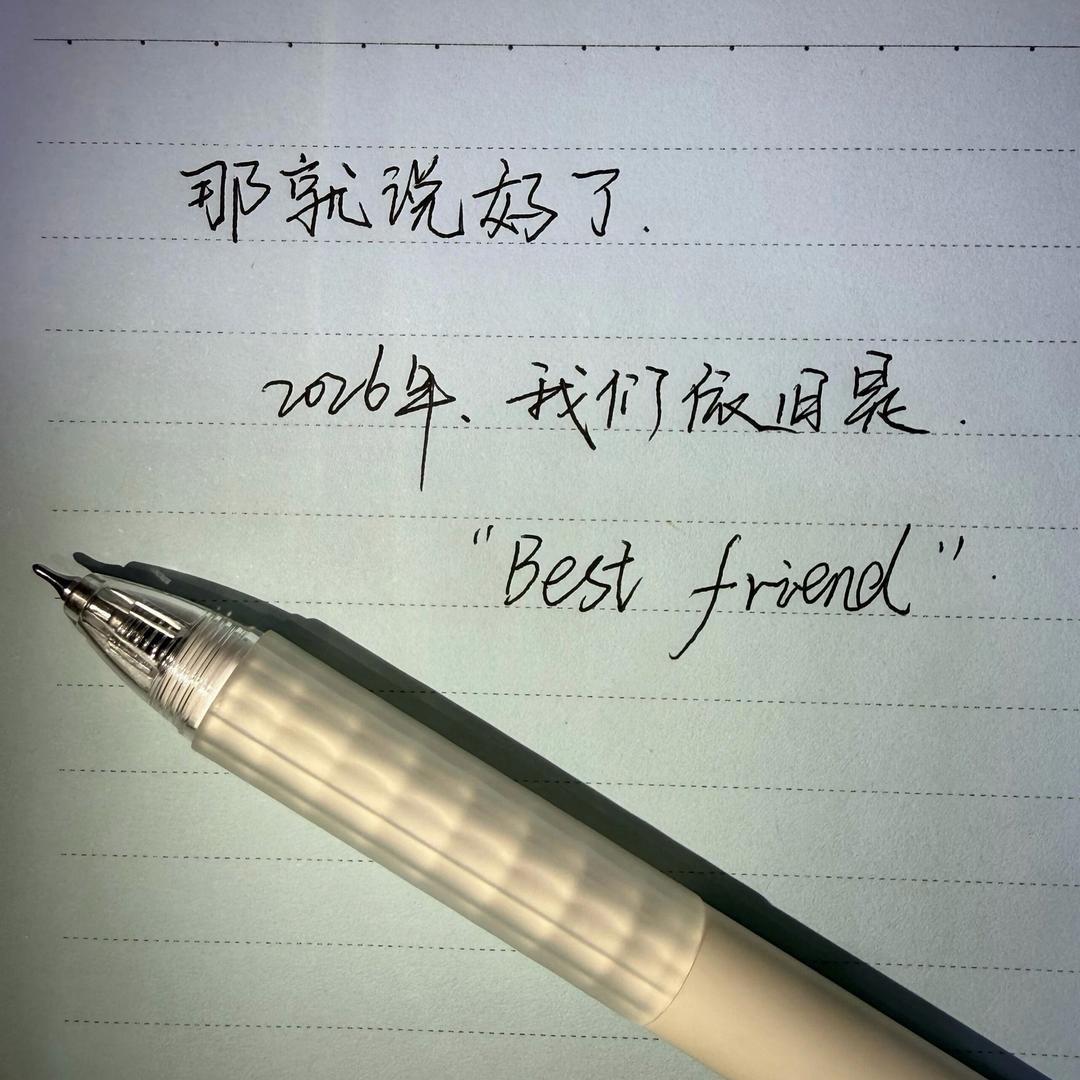 那就说好了.
2026年、我们依旧是.
"Best friend".